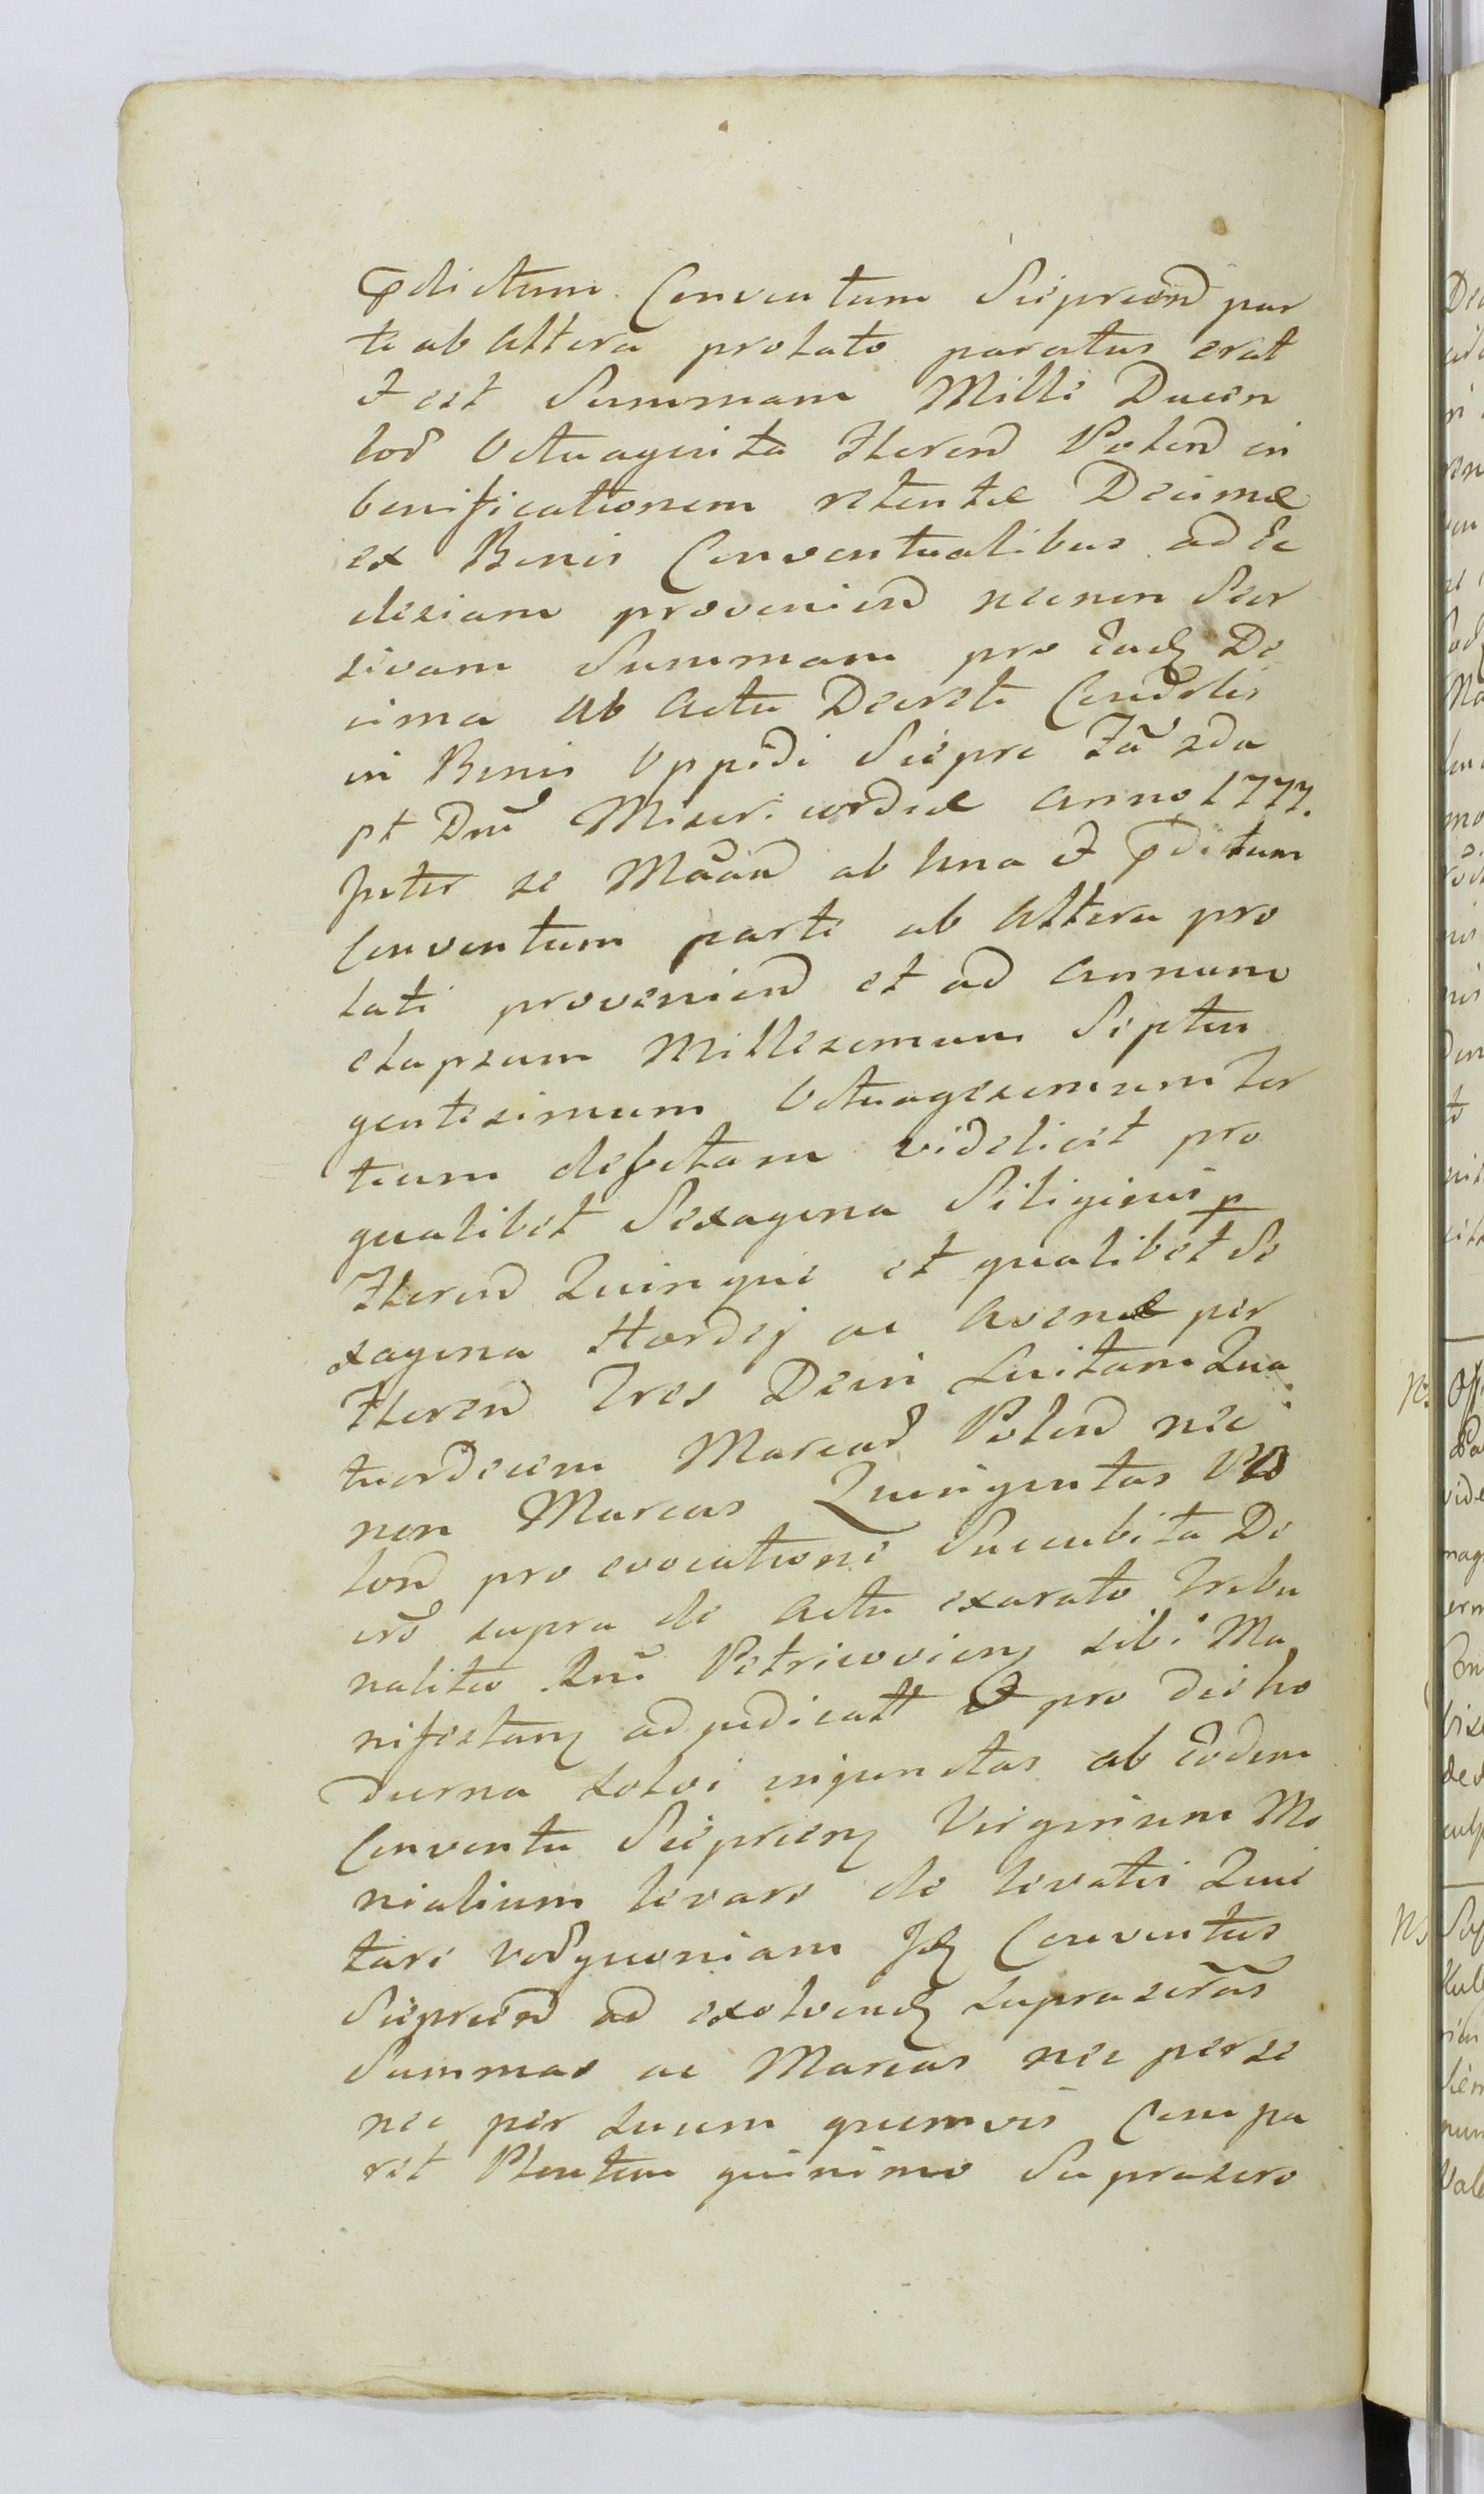 pdictum Conventum Siepreÿ par
te ab Altera prolato paratus erat
id est Summam Mille Ducen
tor Octuaginta Floren Polon in
benificationem retentæ Decimæ
ex Bonis Conventualibus ad Ec
clesiam provenien necnon Suc
sivam Summam pro Ead De
cima ab Actu Decreti Condlis
in Bonis Oppidi Siepre Fa 2da
pt Dnu Misericordiæ Anno 1777.
Inter se Man ab Una et pditum
Conventum parte ab Altera pro
lati provenien et ad Annum
elapsum Millesimum Septin
gentesimum Octuagesimum ter
tium debitam videlicet pro
qualibet Sexagena Siliginis p
Floren Quinque et qualibet Se
xagena Hordej ac Avenæ per
Floren Tres Dein Luitam Qua
tuordecem Marcar Polon nec
non Marcas Quingentas Po
lon pro evocatione Succubita De
cro supra de Actu exarato Tribu
nalitio Rni Petricovien sibi Ma
nifestan adjudicatt et pro die ho
dierna solvi injunctas ab Eodem
Conventu Sieprien Virginum Mo
nialium levare de levatis Quie
tare Vedquoniam Id Conventus
Sieprien ad exolvend suprascras
Summas ac Marcas nec per se
nec per suum quemvis Compa
ret Plentem quinimo Suprascro